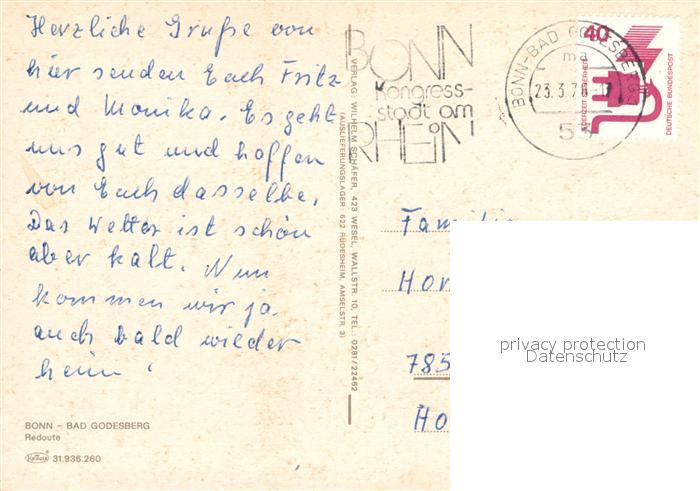 Herzliche Grüße von
hier senden Euch Fritz
und Monika. Es geht
uns gut und hoffen
von Euch dasselbe.
Das Wetter ist schön
aber kalt. Nun
kommen wir ja
auch bald wieder
heim.
BONN – BAD GODESBERG
Redoute
Krüger 31.936.260
VERLAG: WILHELM SCHÄFER, 423 WESEL, WALLSTR. 10, TEL.: 0281/22462
(AUSLIEFERUNGSLAGER: 622 RÜDESHEIM, AMSELSTR. 3)
BONN
Kongress-
stadt am
RHEIN
BONN-BAD GODESBERG
ma
23.3.76-17
53
40
JEDERZEIT SICHERHEIT
DEUTSCHE BUNDESPOST
Familie
Hor
785
Ho
privacy protection
Datenschutz